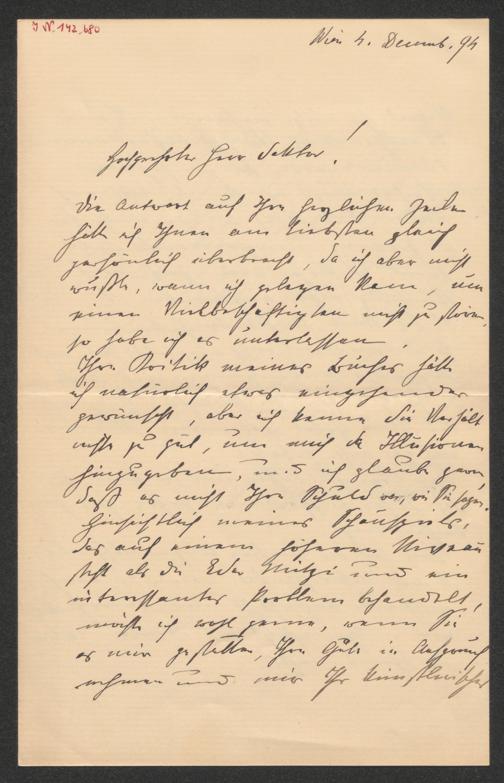 J.N. 142.680
Wien 4. Decemb. 94
Hochgeehrter Herr Doktor!
Die Antwort auf Ihre herzlichen Zeilen
hätte ich Ihnen am liebsten gleich
persönlich überbracht, da ich aber nicht
wußte, wann ich gelegen kam, um
einen Vielbeschäftigten nicht zu stören,
so habe ich es unterlassen.
Ihre Kritik meines Buches hätte
ich natürlich etwas eingehender
gewünscht, aber ich kenne die Verhält
nisse zu gut, um mich da Illusionen
hinzugeben, und ich glaube gern
daß es nicht Ihre Schuld war, wie Sie sagen.
Hinsichtlich meines Schauspiels,
das auf einem höheren Niveau
steht als die Mitzi und ein
interessantes Problem behandelt,
möchte ich wohl gerne, wenn Sie
es mir gestatten, Ihre Güte in Anspruch
nehmen und mir Ihr künstlerisches